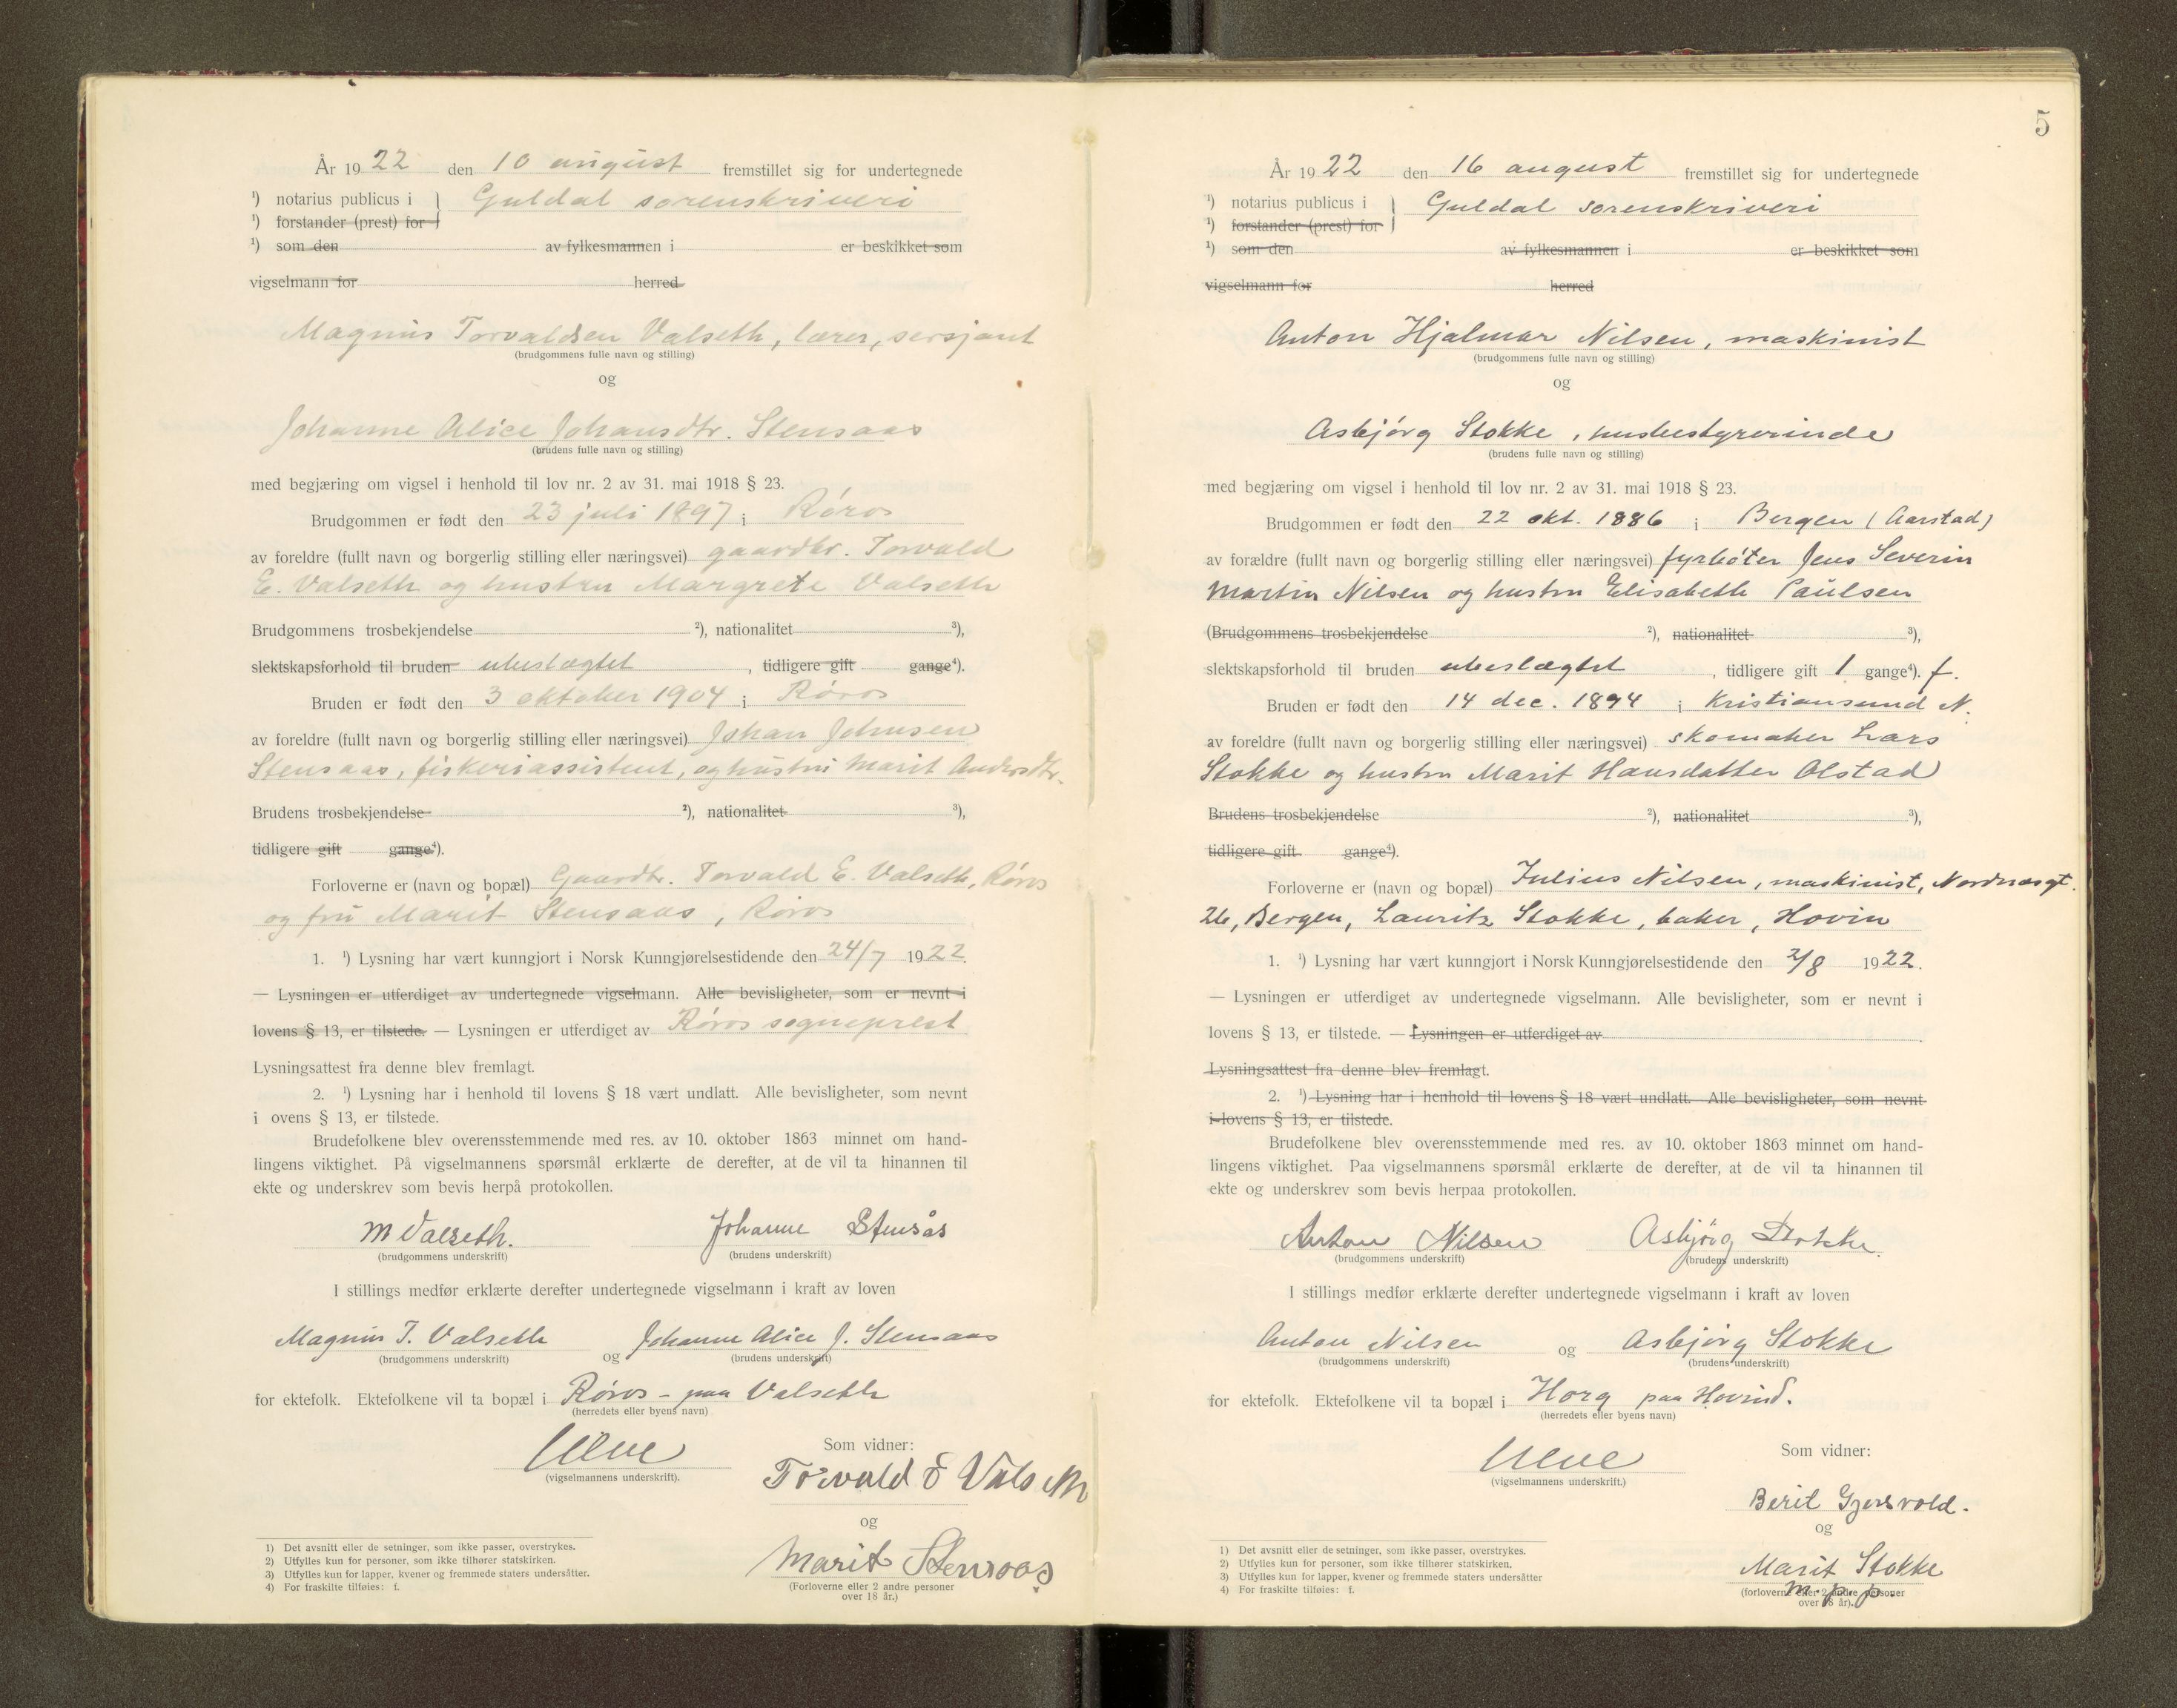 År 19 22 den 10 august fremstillet sig for undertegnede
¹) notarius publicus i } Guldal sorenskriveri
¹) forstander (prest) for
¹) som den av fylkesmannen i er beskikket som
vigselmann for herred
Magnus Torvaldsen Valseth, lærer, sersjant
(brudgommens fulle navn og stilling)
og
Johanne Alice Johansdtr. Stensaas
(brudens fulle navn og stilling)
med begjæring om vigsel i henhold til lov nr. 2 av 31. mai 1918 § 23.
Brudgommen er født den 23 juli 1897 i Røros
av foreldre (fullt navn og borgerlig stilling eller næringsvei) gaardbr. Torvald
E. Valseth og hustru Margrete Valseth
Brudgommens trosbekjendelse ²), nationalitet ³),
slektskapsforhold til bruden ubeslægtet , tidligere gift gange⁴).
Bruden er født den 3 oktober 1904 i Røros
av foreldre (fullt navn og borgerlig stilling eller næringsvei) Johan Johnsen
Stensaas, fiskeriassistent, og hustru Marit Andersdtr.
Brudens trosbekjendelse ²), nationalitet ³),
tidligere gift gange⁴).
Forloverne er (navn og bopæl) Gaardbr. Torvald E. Valseth, Røros
og fru Marit Stensaas, Røros
1. ¹) Lysning har vært kunngjort i Norsk Kunngjørelsestidende den 24/7 1922.
— Lysningen er utferdiget av undertegnede vigselmann. Alle bevisligheter, som er nevnt i
lovens § 13, er tilstede. — Lysningen er utferdiget av Røros sogneprest
Lysningsattest fra denne blev fremlagt.
2. ¹) Lysning har i henhold til lovens § 18 vært undlatt. Alle bevisligheter, som nevnt
i ovens § 13, er tilstede.
Brudefolkene blev overensstemmende med res. av 10. oktober 1863 minnet om hand-
lingens viktighet. På vigselmannens spørsmål erklærte de derefter, at de vil ta hinannen til
ekte og underskrev som bevis herpå protokollen.
M Valseth. Johanne Stensås
(brudgommens underskrift) (brudens underskrift)
I stillings medfør erklærte derefter undertegnede vigselmann i kraft av loven
Magnus T. Valseth og Johanne Alice J. Stensaas
(brudgommens underskrift) (brudens underskrift)
for ektefolk. Ektefolkene vil ta bopæl i Røros - paa Valseth
(herredets eller byens navn)
Som vidner:
(vigselmannens underskrift).
Torvald E Valseth
og
Marit Stensaas
(Forloverne eller 2 andre personer
over 18 år.)
1) Det avsnitt eller de setninger, som ikke passer, overstrykes.
2) Utfylles kun for personer, som ikke tilhører statskirken.
3) Utfylles kun for lapper, kvener og fremmede staters undersåtter.
4) For fraskilte tilføies: f.
5
År 19 22 den 16 august fremstillet sig for undertegnede
¹) notarius publicus i } Guldal sorenskriveri
¹) forstander (prest) for
¹) som den av fylkesmannen i er beskikket som
vigselmann for herred
Anton Hjalmar Nilsen, maskinist
(brudgommens fulle navn og stilling)
og
Asbjørg Stokke, husbestyrerinde
(brudens fulle navn og stilling)
med begjæring om vigsel i henhold til lov nr. 2 av 31. mai 1918 § 23.
Brudgommen er født den 22 okt. 1886 i Bergen (Aarstad)
av forældre (fullt navn og borgerlig stilling eller næringsvei) fyrbøter Jens Severin
Martin Nilsen og hustru Elisabeth Paulsen
(Brudgommens trosbekjendelse ²), nationalitet ³),
slektskapsforhold til bruden ubeslægtet , tidligere gift 1 gange⁴). f.
Bruden er født den 14 dec. 1894 i Kristiansund N.
av foreldre (fullt navn og borgerlig stilling eller næringsvei) skomaker Lars
Stokke og hustru Marit Hansdatter Olstad
Brudens trosbekjendelse ²), nationalitet ³),
tidligere gift gange⁴).
Forloverne er (navn og bopæl) Julius Nilsen, maskinist, Nordnæsgt.
26, Bergen, Lauritz Stokke, baker, Hovin
1. ¹) Lysning har vært kunngjort i Norsk Kunngjørelsestidende den 2/8 1922.
— Lysningen er utferdiget av undertegnede vigselmann. Alle bevisligheter, som er nevnt i
lovens § 13, er tilstede. — Lysningen er utferdiget av .
Lysningsattest fra denne blev fremlagt.
2. ¹) Lysning har i henhold til lovens § 18 vært undlatt. Alle bevisligheter, som nevnt
i lovens § 13, er tilstede.
Brudefolkene blev overensstemmende med res. av 10. oktober 1863 minnet om hand-
lingens viktighet. Paa vigselmannens spørsmål erklærte de derefter, at de vil ta hinannen til
ekte og underskrev som bevis herpaa protokollen.
Anton Nilsen Asbjörg Stokke.
(brudgommens underskrift) (brudens underskrift)
I stillings medfør erklærte derefter undertegnede vigselmann i kraft av loven
Anton Nilsen og Asbjørg Stokke
(brudgommens underskrift) (brudens underskrift)
for ektefolk. Ektefolkene vil ta bopæl i Horg paa Hovind.
(herredets eller byens navn)
Som vidner:
(vigselmannens underskrift.)
Berit
og
Marit Stokke
m. p. p.
(forloverne eller 2 andre personer
over 18 år).
1) Det avsnitt eller de setninger, som ikke passer, overstrykes.
2) Utfylles kun for personer, som ikke tilhører statskirken.
3) Utfylles kun for lapper, kvener og fremmede staters undersåtter
4) For fraskilte tilføies: f.